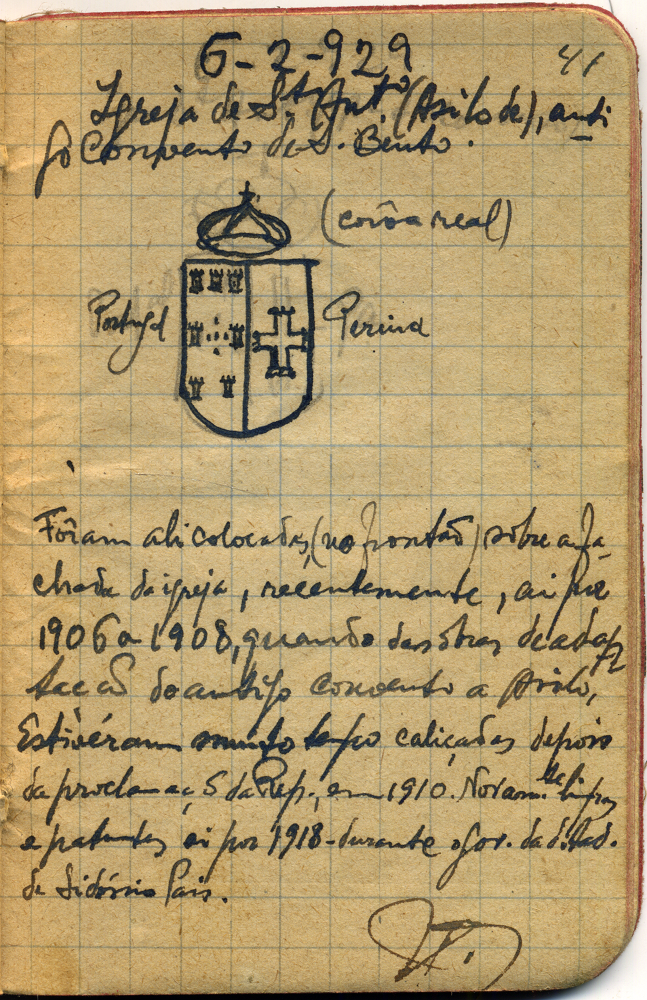 6-2-929
41
Igreja de S.to Ant.o (Asilo de), anti
go Convento de S. Bento.
(corôa real)
Portugal
Pereira
Fôram ali colocadas, (no frontão) sôbre a fa-
chada da igreja, recentemente, aí por
1906 a 1908, quando das obras de adap
tação do antigo convento a Asilo,
Estivéram muito tempo caliçadas depois
da proclamação da Rep., em 1910. Novam.te limpas
e patentes aí por 1918 - durante o Gov. da ditad.
de Sidónio Pais.